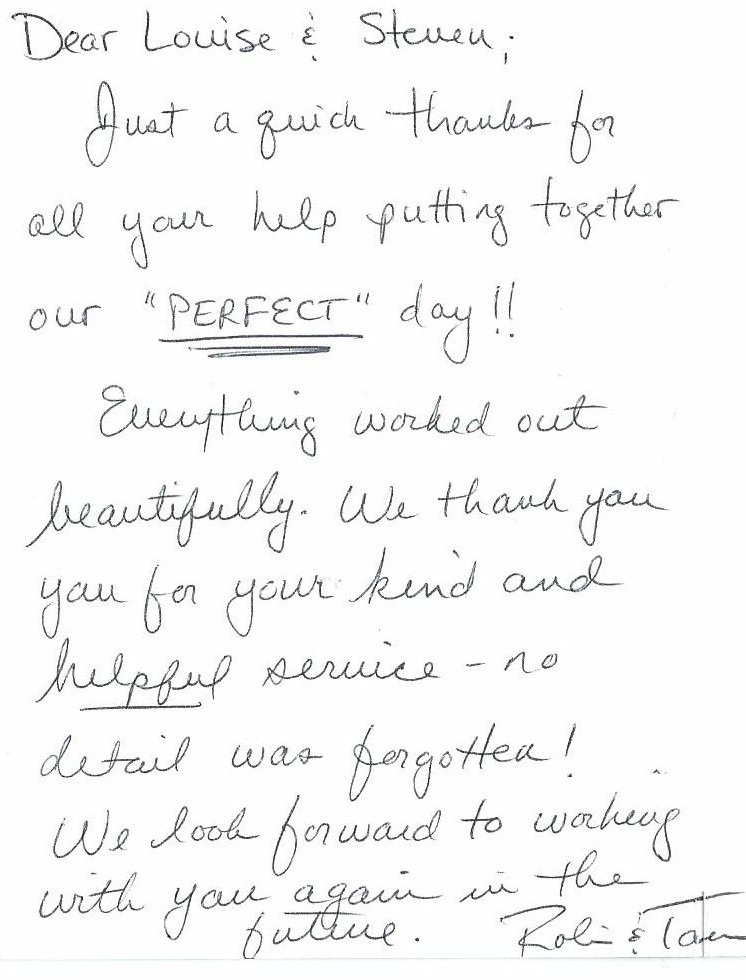 Dear Louise & Steven;
Just a quick thanks for
all your help putting together
our "PERFECT" day!!
Everything worked out
beautifully. We thank you
you for your kind and
helpful service - no
detail was forgotten!
We look forward to working
with you again in the
future. Robin &